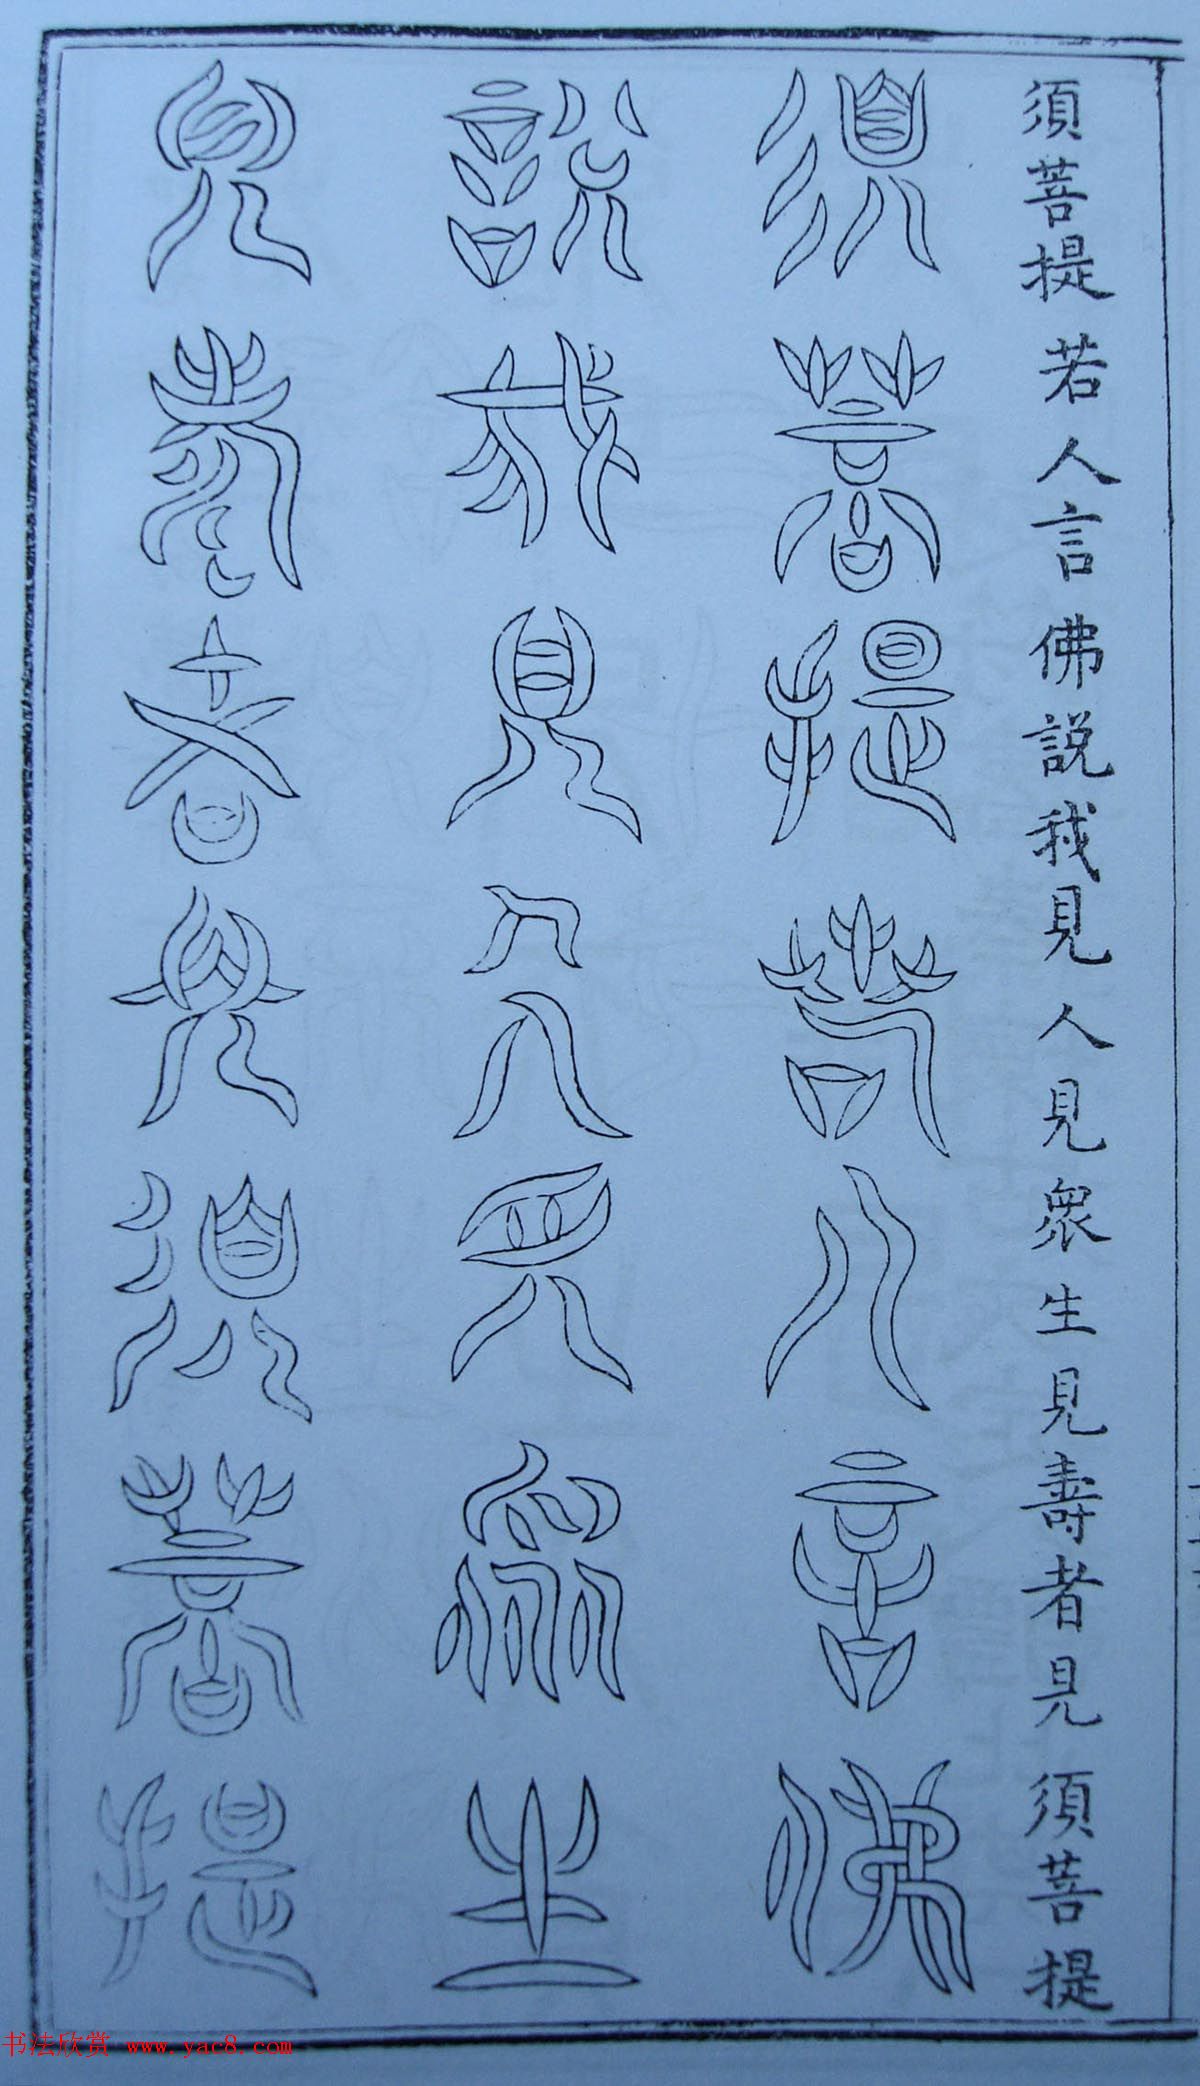 須菩提若人言佛説我見人見眾生見壽者見須菩提
須菩提若人言佛
説我見人見眾生
見壽者見須菩提
书法欣赏 www.yac8.com